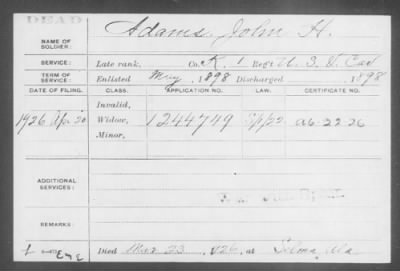 DEAD
NAME OF SOLDIER: Adams, John H.
SERVICE: Late rank, Co. K. 1 Reg't U. S. V. Cav
TERM OF SERVICE: Enlisted May, 1898 Discharged , 1898
DATE OF FILING. CLASS. APPLICATION NO. LAW. CERTIFICATE NO.
Invalid,
1926 Apr 20 Widow, 1244749
Minor,
ADDITIONAL SERVICES:
REMARKS:
Died Mar 23, 1926, at Selma, Ala